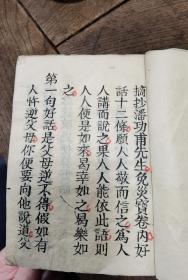 摘抄潘功甫先生免災寶卷內好
話十二條願人人敬而信之為人
人講而說之果人人能依此語則
人人便是如來曷幸如之曷樂如
之
第一句好話是父母逆不得假如有
人忤逆父母你便要向他說道父